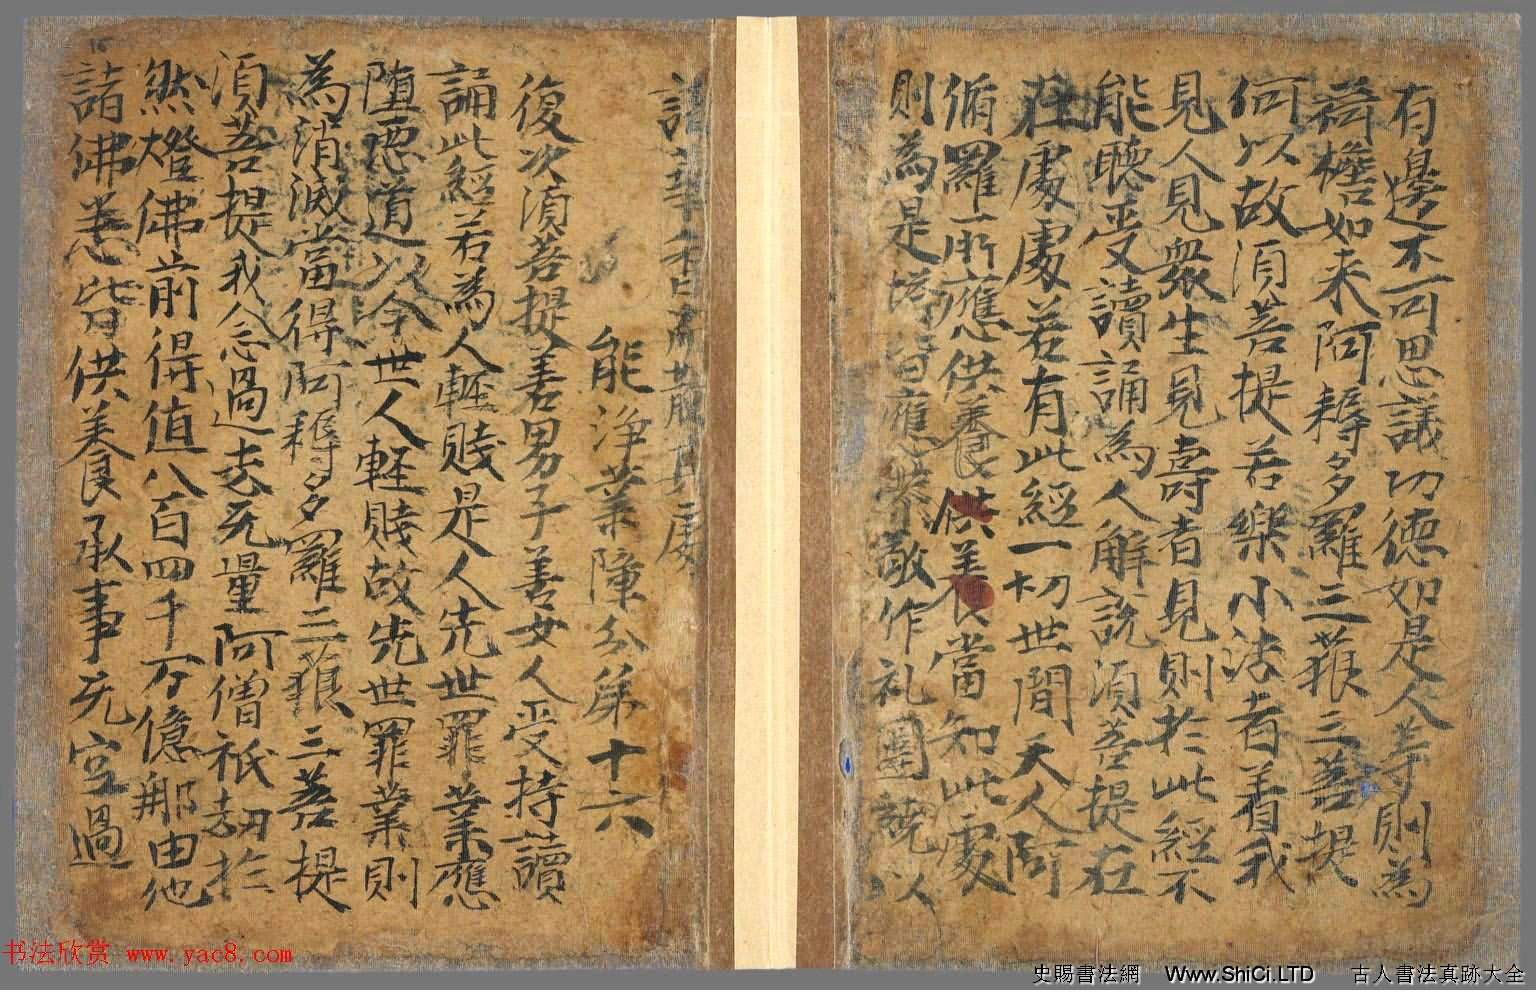 有邊不可思議功德如是人等則為
荷檐如来阿耨多羅三猿三菩提
何以故須菩提若樂小法者着我
見人見衆生見壽者見則於此經不
能聽受讀誦為人解說須菩提在
在處處若有此經一切世間天人阿
脩羅所應供養供養當知此處
則為是塔皆應恭敬作礼圍繞以
諸華香而散其處
能淨業障分第十六
復次須菩提善男子善女人受持讀
誦此經若為人輕賤是人先世罪業應
堕惡道以今世人輕賤故先世罪業則
為消滅當得阿耨多羅三猿三菩提
須菩提我念過去无量阿僧祇劫於
然燈佛前得值八百四千万億那由他
諸佛悉皆供養承事无空過
书法欣赏 www.yac8.com
史賜書法網 Www.ShiCi.LTD 古人書法真跡大全